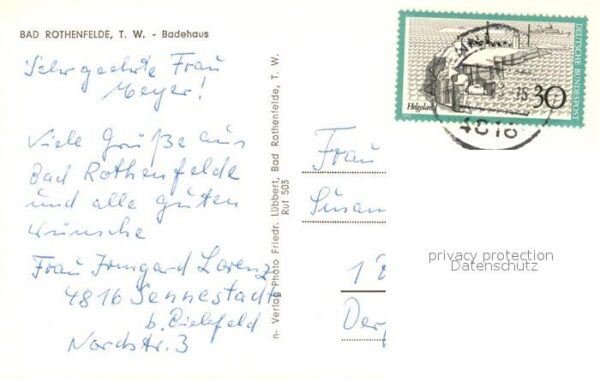 BAD ROTHENFELDE, T. W. - Badehaus
Sehr geehrte Frau
Meyer!
Viele Grüße aus
Bad Rothenfelde
und alle guten
Wünsche
Frau Irmgard Lorenz
4816 Sennestadt
b. Bielefeld
Nordstr. 3
n- Verlag Photo Friedr. Lübbert, Bad Rothenfelde, T. W.
Ruf 503
DEUTSCHE BUNDESPOST
Helgoland
30
4816
Frau
Susan
1
privacy protection
Datenschutz